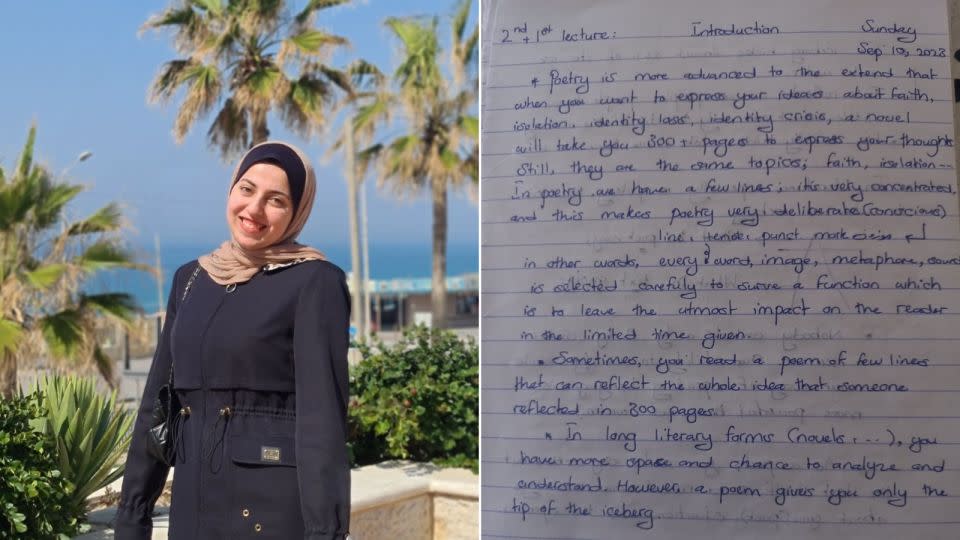 2nd + 1st lecture: Introduction Sunday
Sep 10, 2023
* Poetry is more advanced to the extend that
when you want to express your ideas about faith,
isolation, identity loss, identity crisis, a novel
will take you 300+ pages to express your thoughts
Still, they are the same topics; faith, isolation...
In poetry we have a few lines; it's very concentrated,
and this makes poetry very deliberate (conscious)
line, punct. mark
in other words, every word, image, metaphore, sound
is selected carefuly to surve a function which
is to leave the utmost impact on the reader
in the limited time given.
* Sometimes, you read a poem of few lines
that can reflect the whole idea that someone
reflected in 300 pages.
* In long literary forms (novels, ...), you
have more space and chance to analyze and
understand. However, a poem gives you only the
tip of the iceberg.